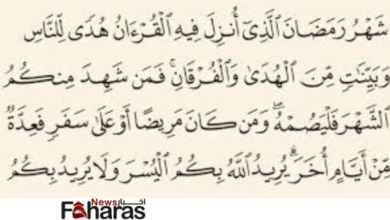 شَهْرُ رَمَضَانَ ٱلَّذِىٓ أُنزِلَ فِيهِ ٱلْقُرْءَانُ هُدًى لِّلنَّاسِ
وَبَيِّنَٰتٍ مِّنَ ٱلْهُدَىٰ وَٱلْفُرْقَانِ ۚ فَمَن شَهِدَ مِنكُمُ
ٱلشَّهْرَ فَلْيَصُمْهُ ۖ وَمَن كَانَ مَرِيضًا أَوْ عَلَىٰ سَفَرٍ فَعِدَّةٌ
مِّنْ أَيَّامٍ أُخَرَ ۗ يُرِيدُ ٱللَّهُ بِكُمُ ٱلْيُسْرَ وَلَا يُرِيدُ بِكُمُ
اخبار News
Faharas